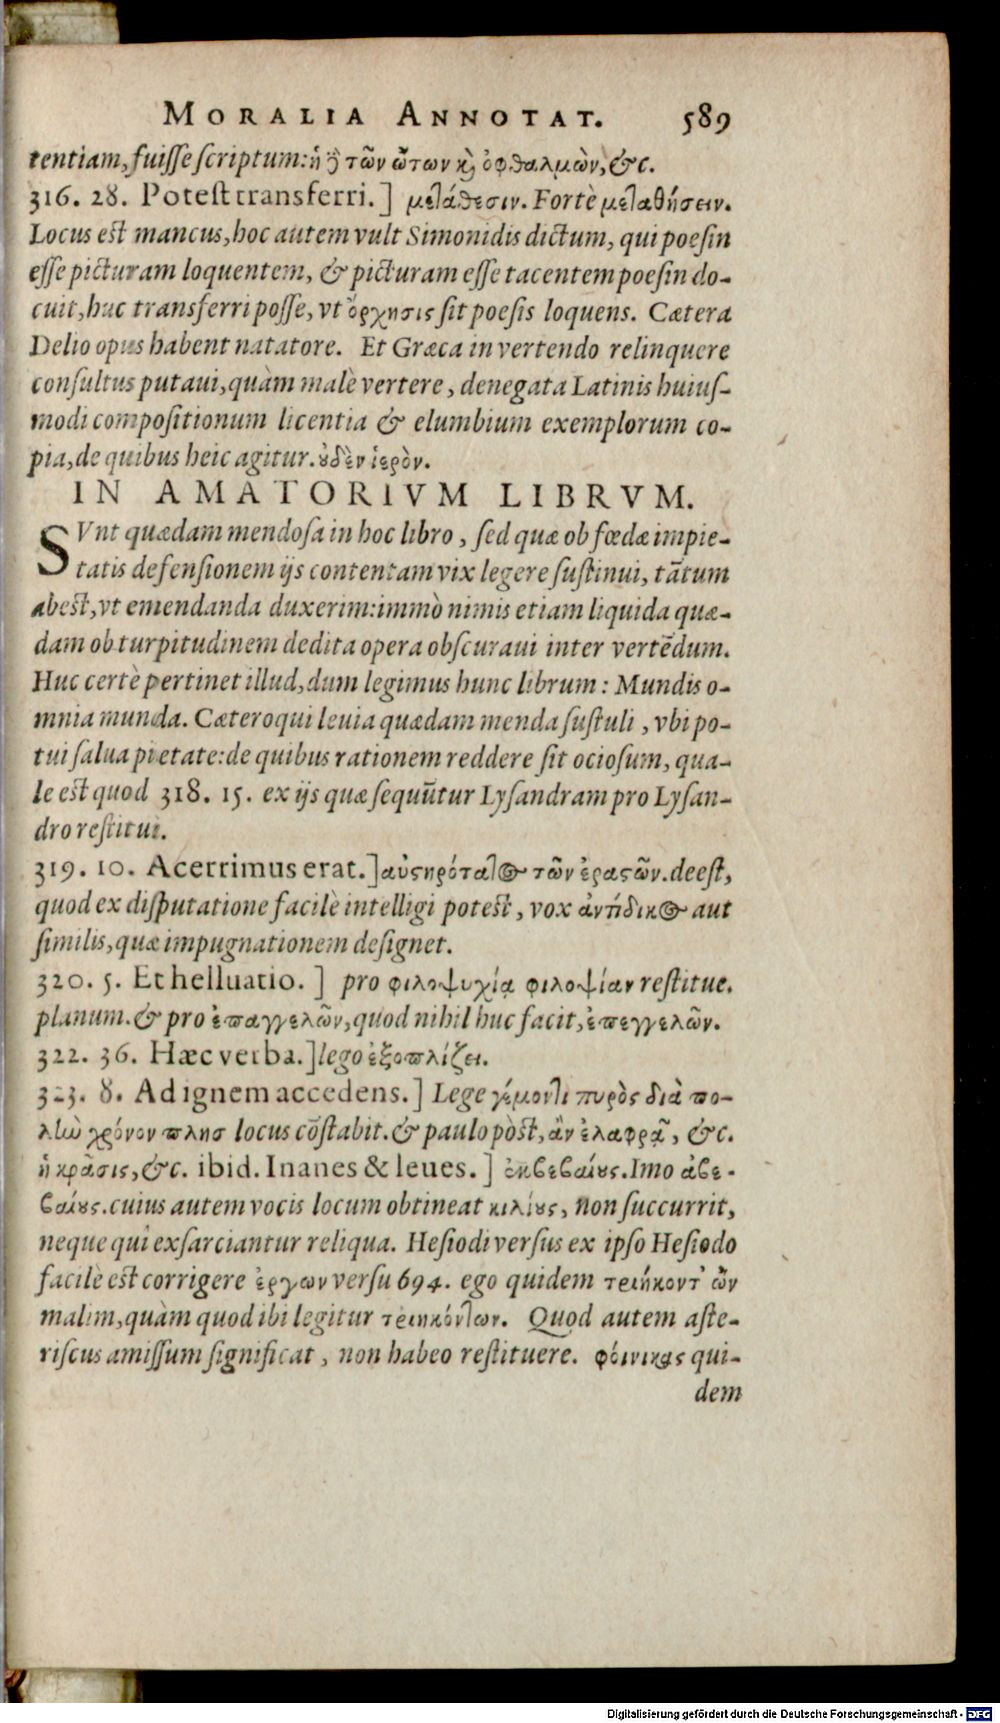 MORALIA ANNOTAT. 589
tentiam, fuisse scriptum: ἡ ϗ τῶν ὤτων ϗ ὀφθαλμῶν, &c.
316. 28. Potest transferri.] μετάθεσιν. Fortè μεταθήσειν.
Locus est mancus, hoc autem vult Simonidis dictum, qui poesin
esse picturam loquentem, & picturam esse tacentem poesin do-
cuit, huc transferri posse, vt ὄρχησις sit poesis loquens. Cætera
Delio opus habent natatore. Et Græca in vertendo relinquere
consultus putaui, quàm malè vertere, denegata Latinis huius-
modi compositionum licentia & elumbium exemplorum co-
pia, de quibus heic agitur. ȣδὲν ἱερὸν.
IN AMATORIVM LIBRVM.
SVnt quædam mendosa in hoc libro, sed quæ ob fœdæ impie-
tatis defensionem ijs contentam vix legere sustinui, tātum
abest, vt emendanda duxerim: immò nimis etiam liquida quæ-
dam ob turpitudinem dedita opera obscuraui inter vertēdum.
Huc certè pertinet illud, dum legimus hunc librum: Mundis o-
mnia munda. Cæteroqui leuia quædam menda sustuli, vbi po-
tui salua pietate: de quibus rationem reddere sit ociosum, qua-
le est quod 318. 15. ex ijs quæ sequūtur Lysandram pro Lysan-
dro restitui.
319. 10. Acerrimus erat.] αὐστηρότατος τῶν ἐραστῶν. deest,
quod ex disputatione facilè intelligi potest, vox ἀντίδικος aut
similis, quæ impugnationem designet.
320. 5. Et helluatio.] pro φιλοψυχίᾳ φιλοψίαν restitue.
planum. & pro ἐπαγγελῶν, quod nihil huc facit, ἐπεγγελῶν.
322. 36. Hæc verba.] lego ἐξοπλίζει.
323. 8. Ad ignem accedens.] Lege γέμοντι πυρὸς διὰ πο-
λὺν χρόνον πλησ locus cōstabit. & paulo pòst, ἂν ἐλαφρᾷ, &c.
ἡ κρᾶσις, &c. ibid. Inanes & leues.] ἐκβεβαίȣς. Imo ἀβε-
βαίȣς. cuius autem vocis locum obtineat κιλίȣς, non succurrit,
neque qui exsarciantur reliqua. Hesiodi versus ex ipso Hesiodo
facilè est corrigere ἐργων versu 694. ego quidem τριήκοντ' ὧν
malim, quàm quod ibi legitur τριηκόντων. Quod autem aste-
riscus amissum significat, non habeo restituere. φόινικας qui-
dem
Digitalisierung gefördert durch die Deutsche Forschungsgemeinschaft - DFG